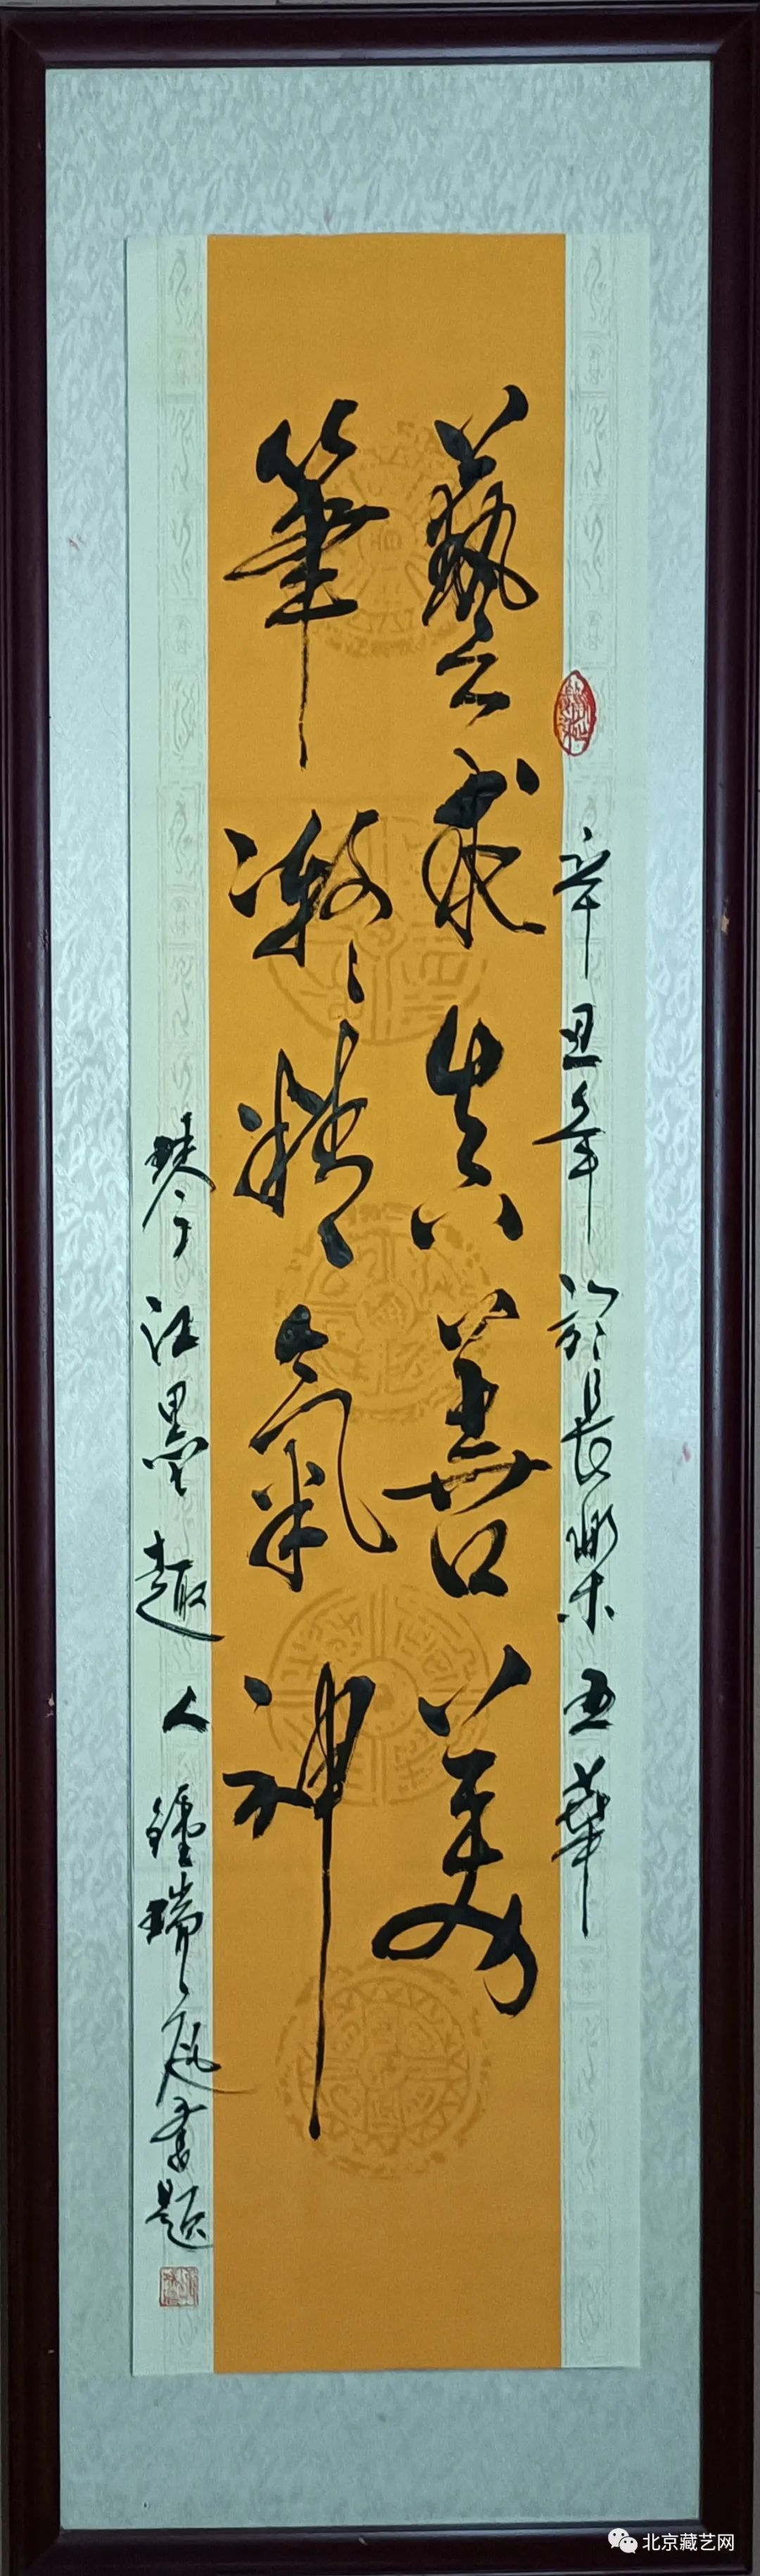 辛丑年於長樂五華
藝求真善美
筆凝精氣神
琴江墨趣人鍾瑞庭書題
北京藏艺网